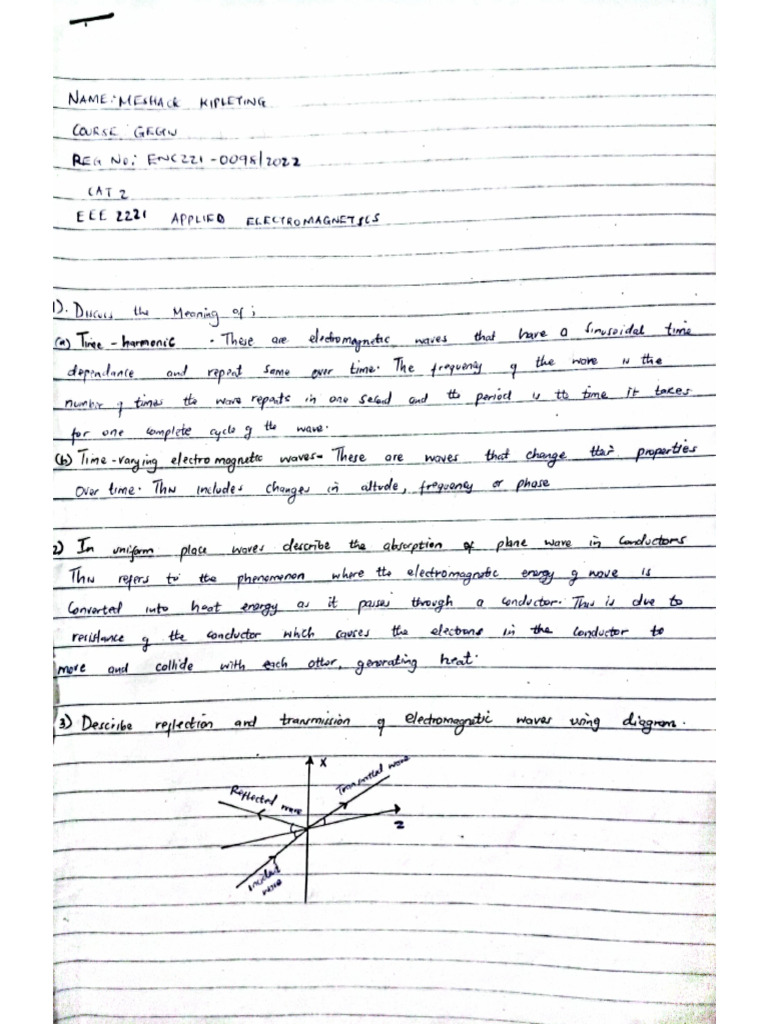 NAME: MESHACK KIPLETING
COURSE GEGIN
REG NO: ENC221-0098/2022
CAT 2
EEE 2221 APPLIED ELECTROMAGNETICS
1). Discuss the Meaning of ;
(a) Time-harmonic . These are electromagnetic waves that have a sinusoidal time
dependance and repeat same over time. The frequency of the wave is the
number of times the wave repeats in one second and the period is the time it takes
for one complete cycle of the wave.
(b) Time-varying electromagnetic waves- These are waves that change their properties
Over time. This includes changes in altude, frequency or phase
2) In uniform place waves describe the absorption of plane wave in conductors
This refers to the phenomenon where the electromagnetic energy of wave is
Converted into heat energy as it passes through a conductor. This is due to
resistance of the conductor which causes the electrons in the conductor to
move and collide with each other, generating heat.
3) Describe reflection and transmission of electromagnetic waves using diagram.
X
Transmitted wave
Reflected wave
Z
Incident
wave